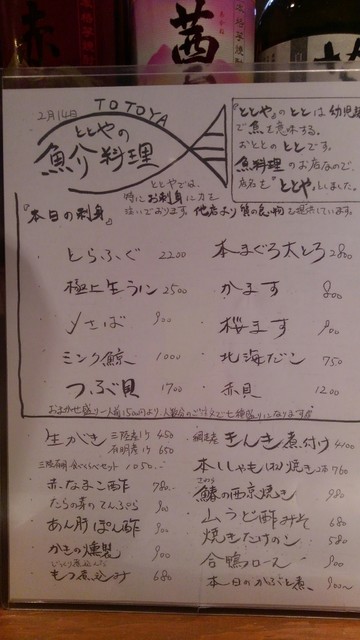 赤
茜
2月14日
TOTOYA
ととやの
魚介料理
『ととや』のととは幼児
で魚を意味する。
おととのととです。
魚料理のお店なので、
店名を『ととや』としました。
ととやでは、
特にお刺身に力を
注いでおります。他店より質の良い物を提供しています。
『本日の刺身』
とらふぐ 2200
本まぐろ大とろ 2800
極上生ウニ 2500
かます 800
〆さば 900
桜ます 900
ミンク鯨 1000
北海だこ 750
つぶ貝 1700
赤貝 1200
おまかせ盛り一人前1500円より、人数分のご注文で七種盛りになります
生がき 三陸産1ヶ 450
石明産1ヶ 650
三陸石明 食べくらべセット 1050
赤なまこ酢 780
たらの芽のてんぷら 900
あん肝ぽん酢 900
かきの燻製 900
じっくり煮込んだ
もつ煮込み 680
網走産 きんき煮付け 4100
本ししゃも焼き 2本 760
さわら
鰆の西京焼き 980
山うど酢みそ 680
焼きたけのこ 580
合鴨ロース 900
本日のかぶと煮 900〜